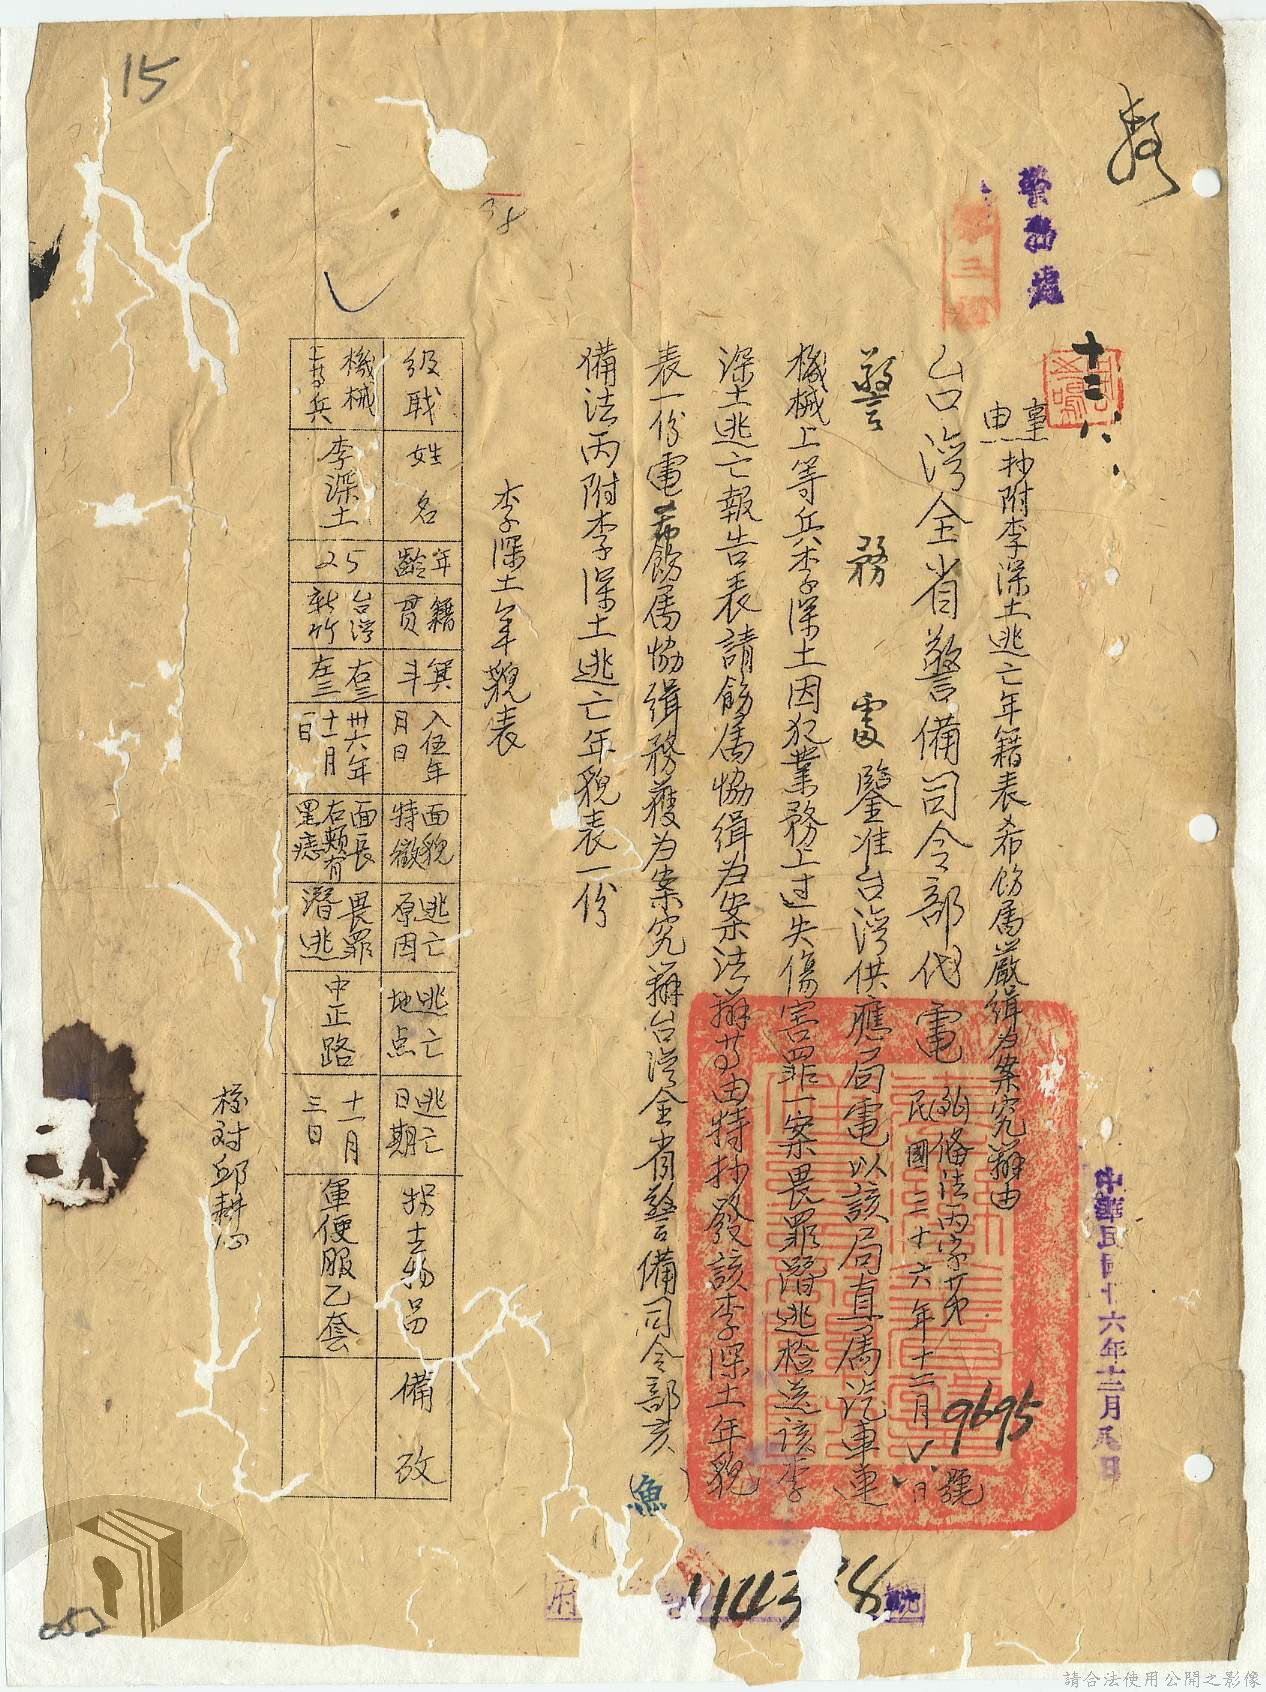 15
警務處
十二、八、
事由
抄附李深土逃亡年籍表希飭属嚴緝為案究辦由
台灣全省警備司令部代電
法丙字第9695號
民國三十六年十二月八日
警務處鑒准台灣供應局電以該局直属汽車連
機械上等兵李深土因犯業務上过失傷害罪一案畏罪潛逃檢送該李
深土逃亡報告表請飭属協緝為案法辦等由特抄發該李深土年貌
表一份電希飭属協緝務獲為案究辦台灣全省警備司令部亥(魚)
備法丙附李深土逃亡年貌表一份
李深土年貌表
級職 姓名 年齡 籍貫 箕斗 入伍年月日 面貌特徵 逃亡原因 逃亡地点 逃亡日期 拐去物品 備攷
機械上等兵 李深土 25 台灣新竹 右三左三 卅六年十一月日 面長右頰有黑痣 畏罪潛逃 中正路 十一月三日 軍便服乙套
校对邱耕心
052
請合法使用公開之影像